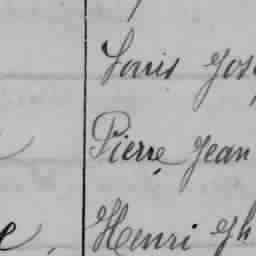 Louis Jos
Pierre Jean
e, Henri Gh